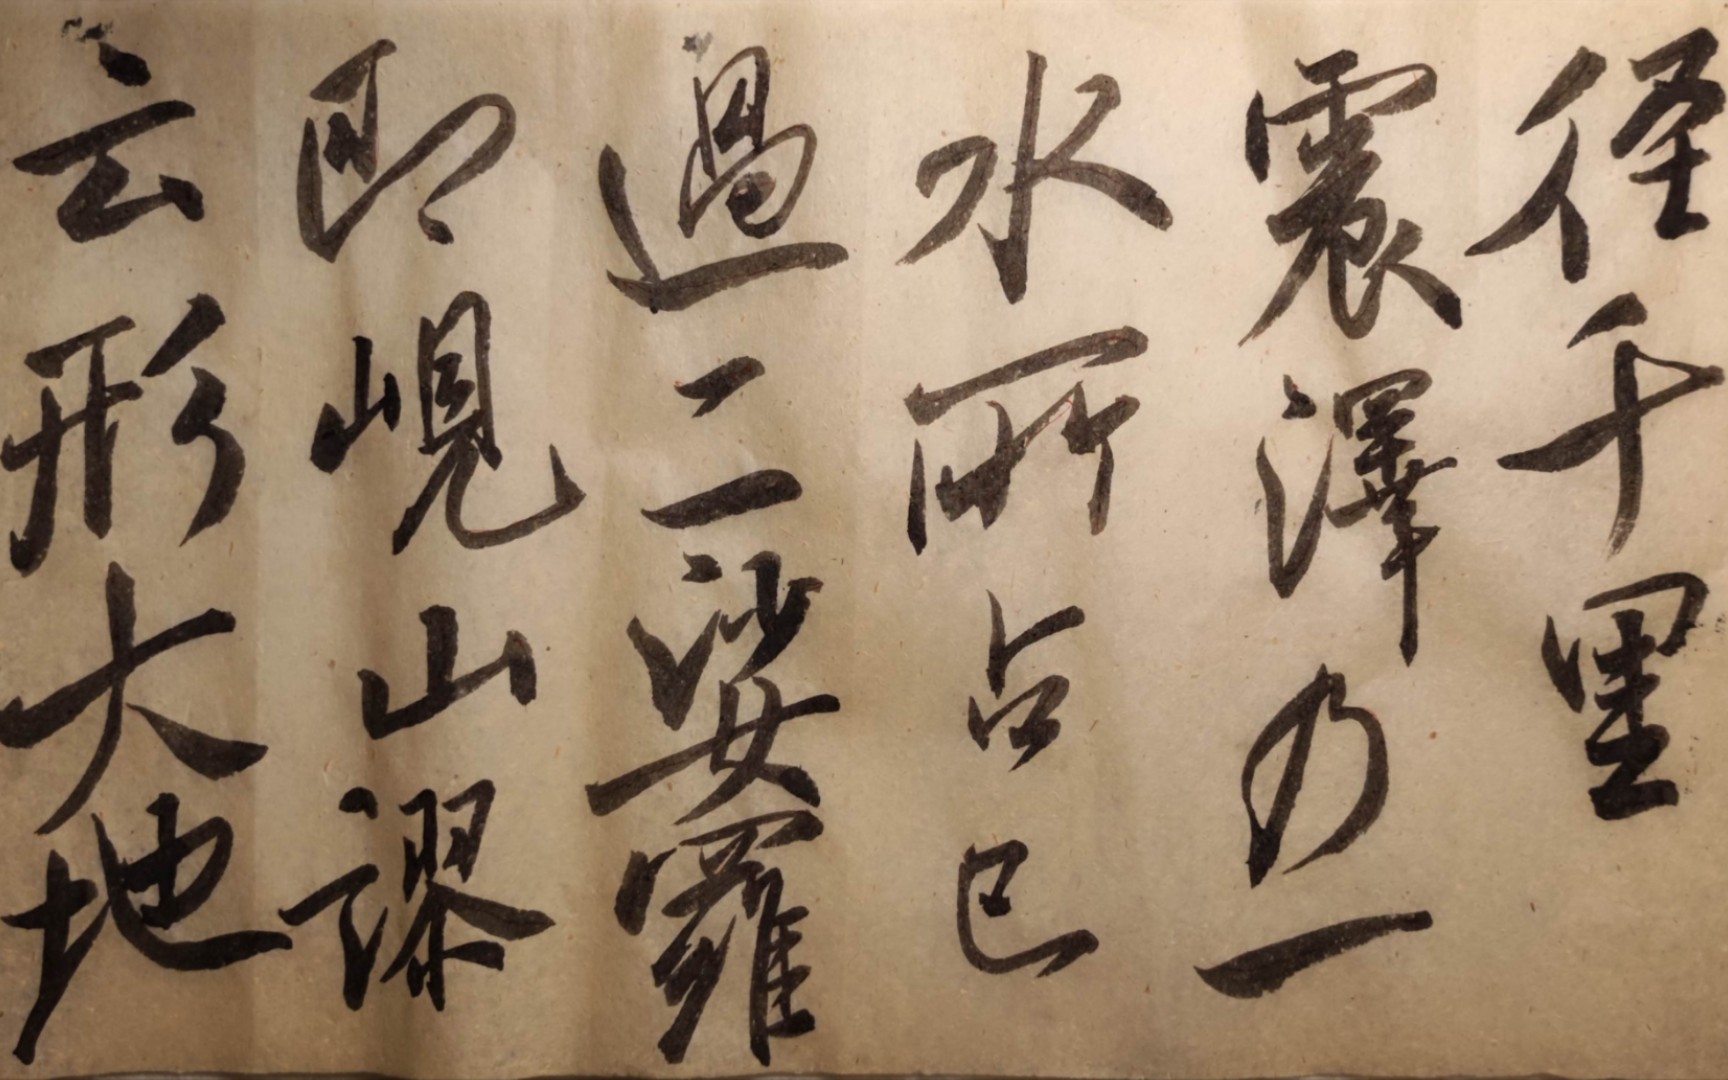 径千里
震澤乃一
水所占已
過二娑羅
即峴山謬
云形大地